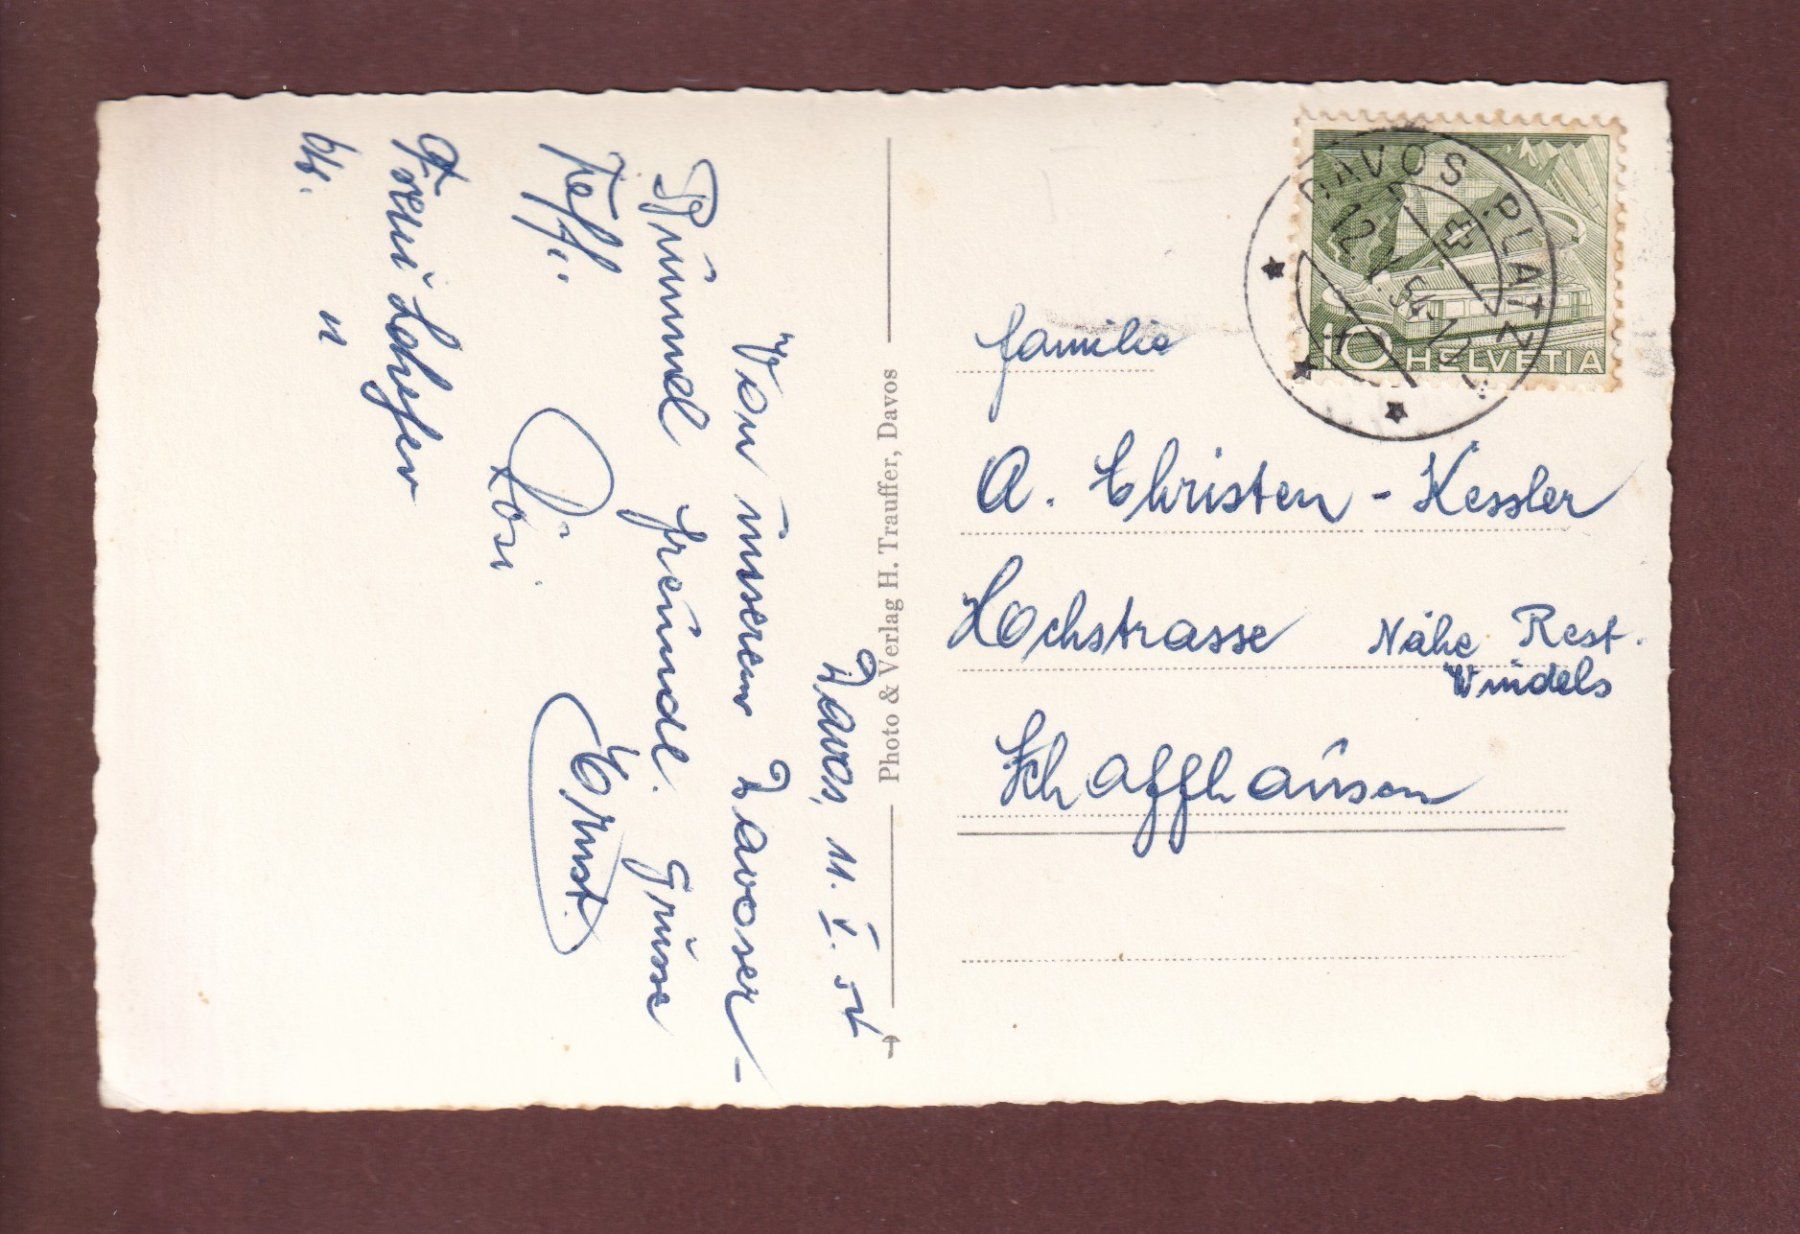 Davos, 11. V. 54
Von unserem Davoser-
Bummel freundl. Grüsse
Rösi Ernst.
Familie
A. Christen - Kessler
Hochstrasse Nähe Rest.
Windels
Schaffhausen
Photo & Verlag H. Trauffer, Davos
DAVOS PLATZ
12.V.54-11
10 HELVETIA